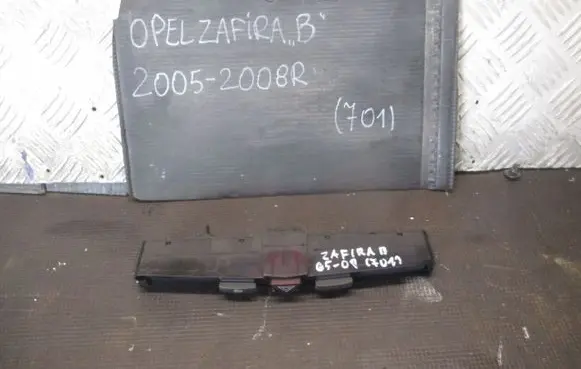 OPEL ZAFIRA „B"
2005-2008R
(701)
ZAFIRA B
05-08 (701)